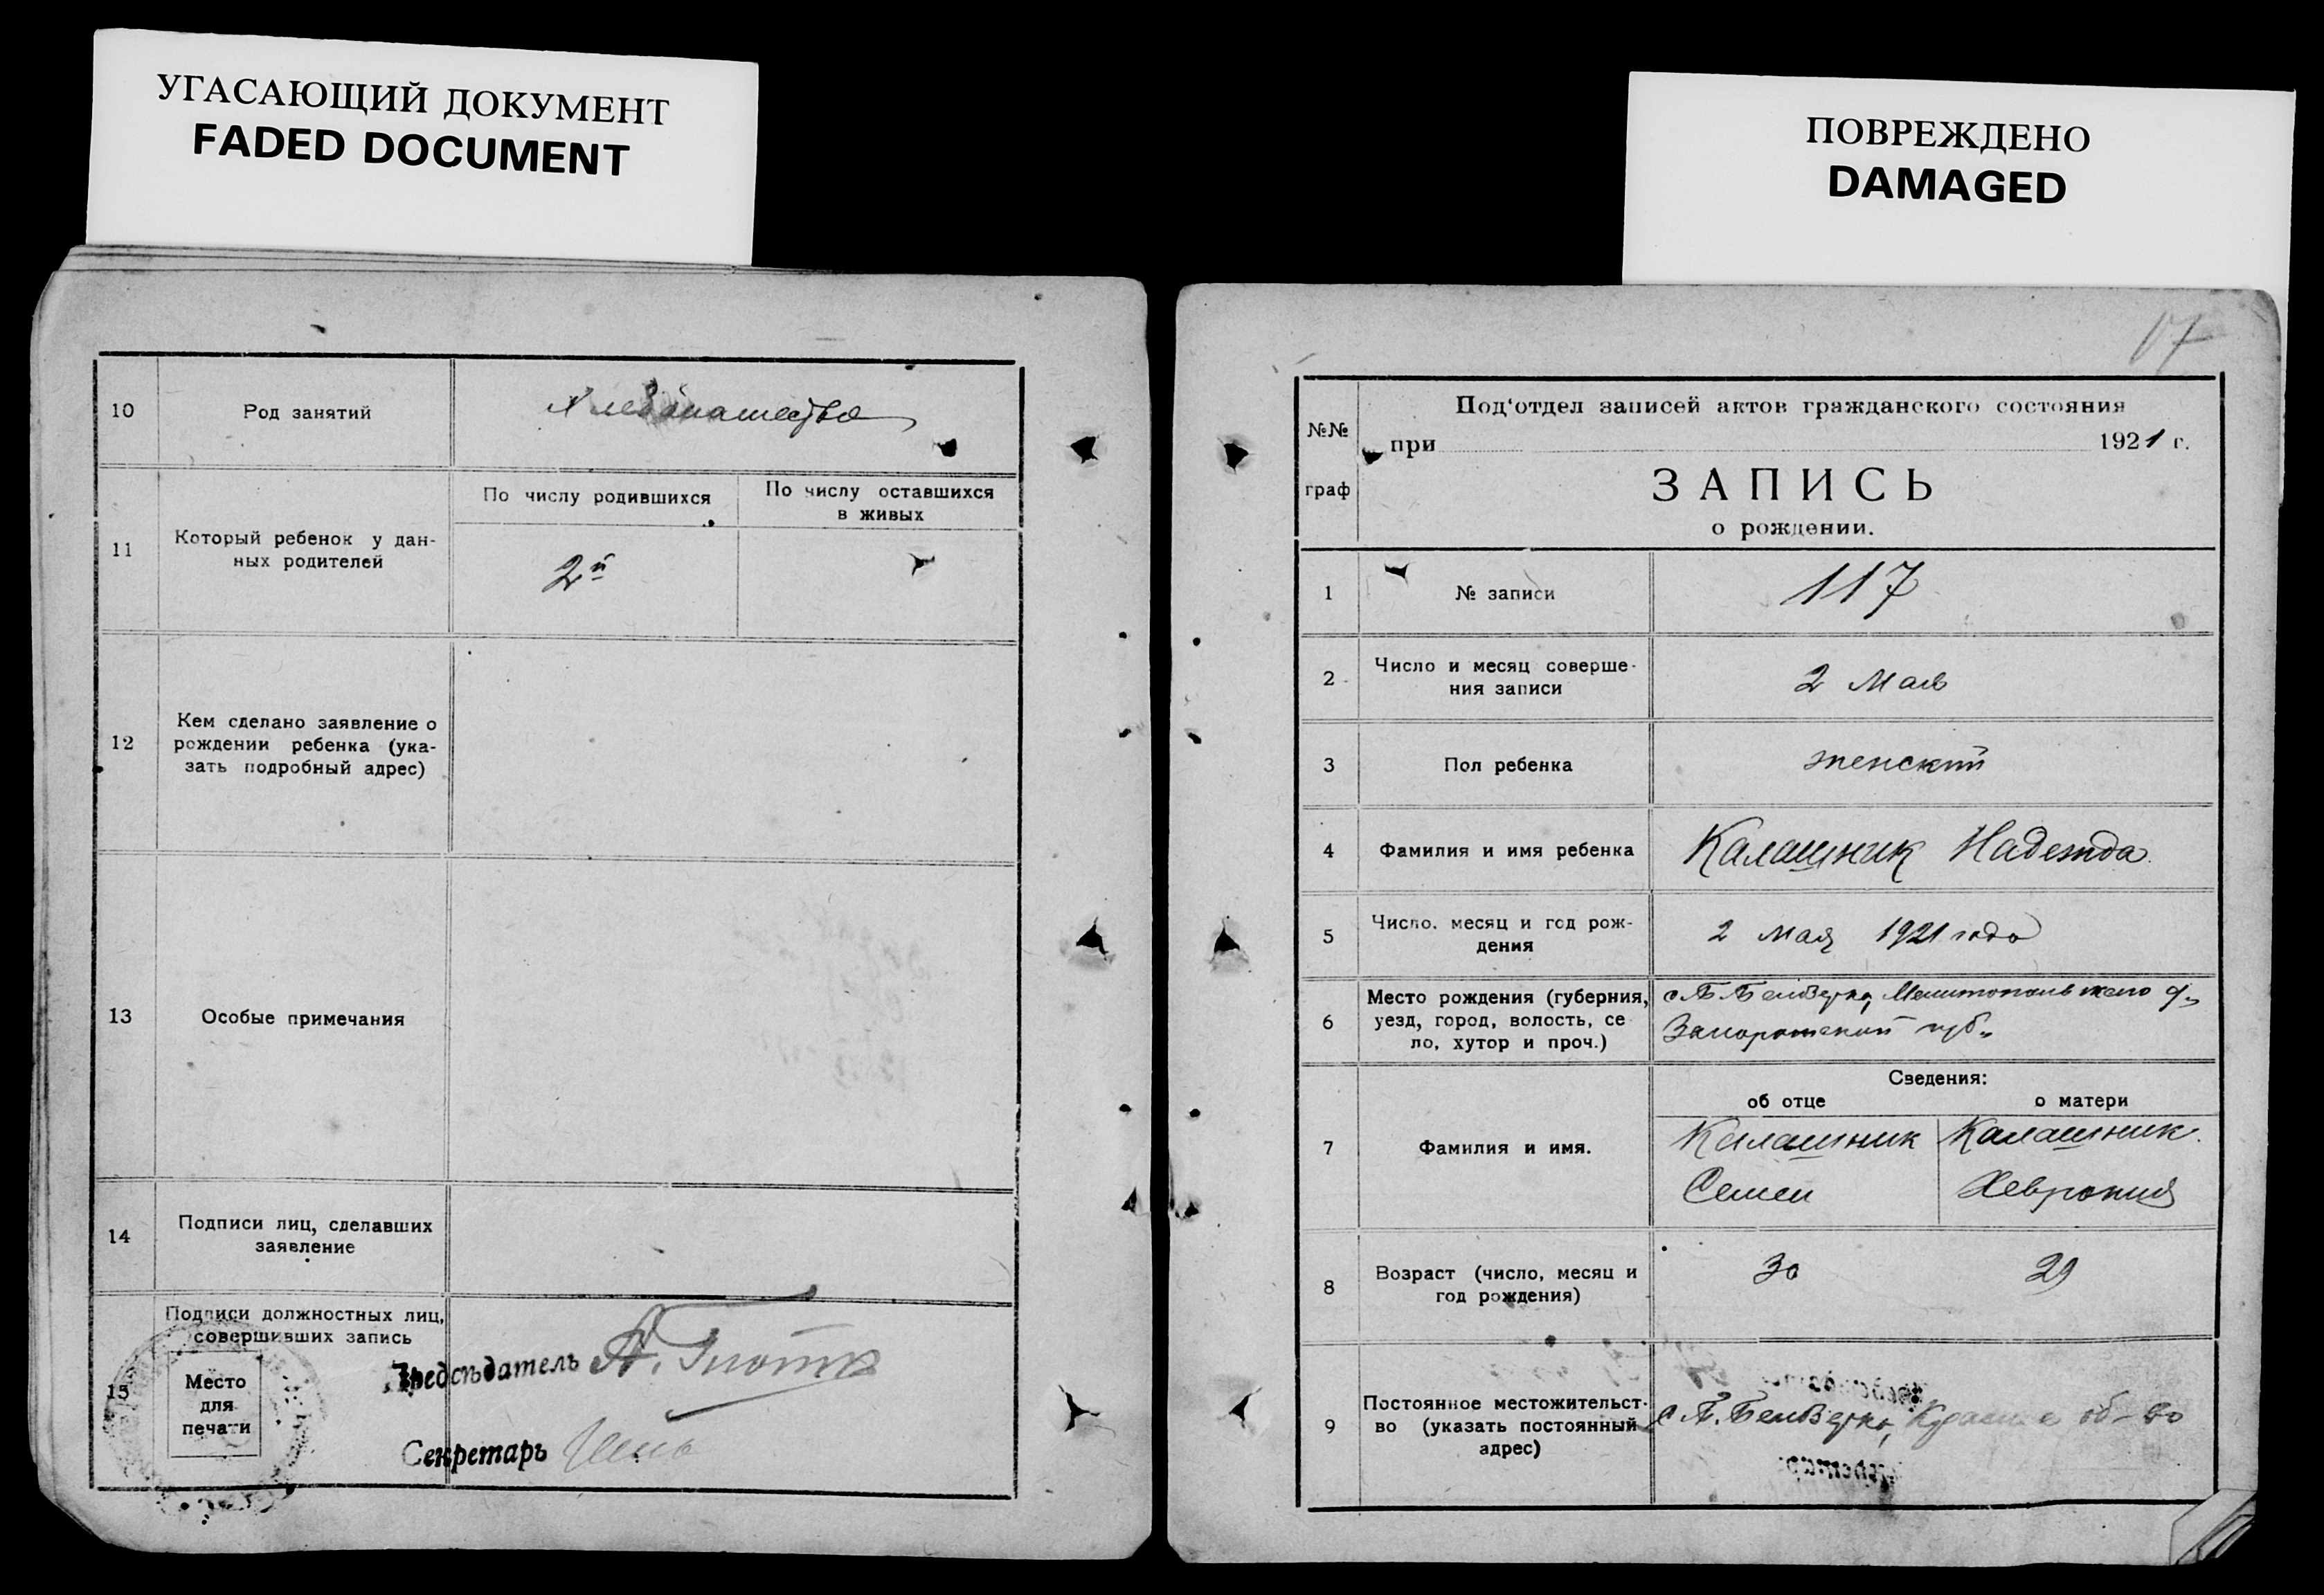 УГАСАЮЩИЙ ДОКУМЕНТ
FADED DOCUMENT
10
Род занятий
Хлебопашество
11
Который ребенок у дан-
ных родителей
По числу родившихся
По числу оставшихся
в живых
2й
12
Кем сделано заявление о
рождении ребенка (ука-
зать подробный адрес)
13
Особые примечания
14
Подписи лиц, сделавших
заявление
15
Подписи должностных лиц,
совершивших запись
Место
для
печати
Предсѣдатель А.
Секретарь
ПОВРЕЖДЕНО
DAMAGED
17
№№
граф
Под‘отдел записей актов гражданского состояния
при 1921 г.
ЗАПИСЬ
о рождении.
1
№ записи
117
2
Число и месяц соверше-
ния записи
2 Мая
3
Пол ребенка
женский
4
Фамилия и имя ребенка
Калашник Надежда
5
Число, месяц и год рож-
дения
2 мая 1921 года
6
Место рождения (губерния,
уезд, город, волость, се
ло, хутор и проч.)
с Б. Белозерка, Мелитопольского у.,
Запорожской губ.,
Сведения:
об отце
о матери
7
Фамилия и имя.
Калашник
Семен
Калашник
Хеврония
8
Возраст (число, месяц и
год рождения)
30
29
9
Постоянное местожительст-
во (указать постоянный
адрес)
с Б. Белозерка, об-во